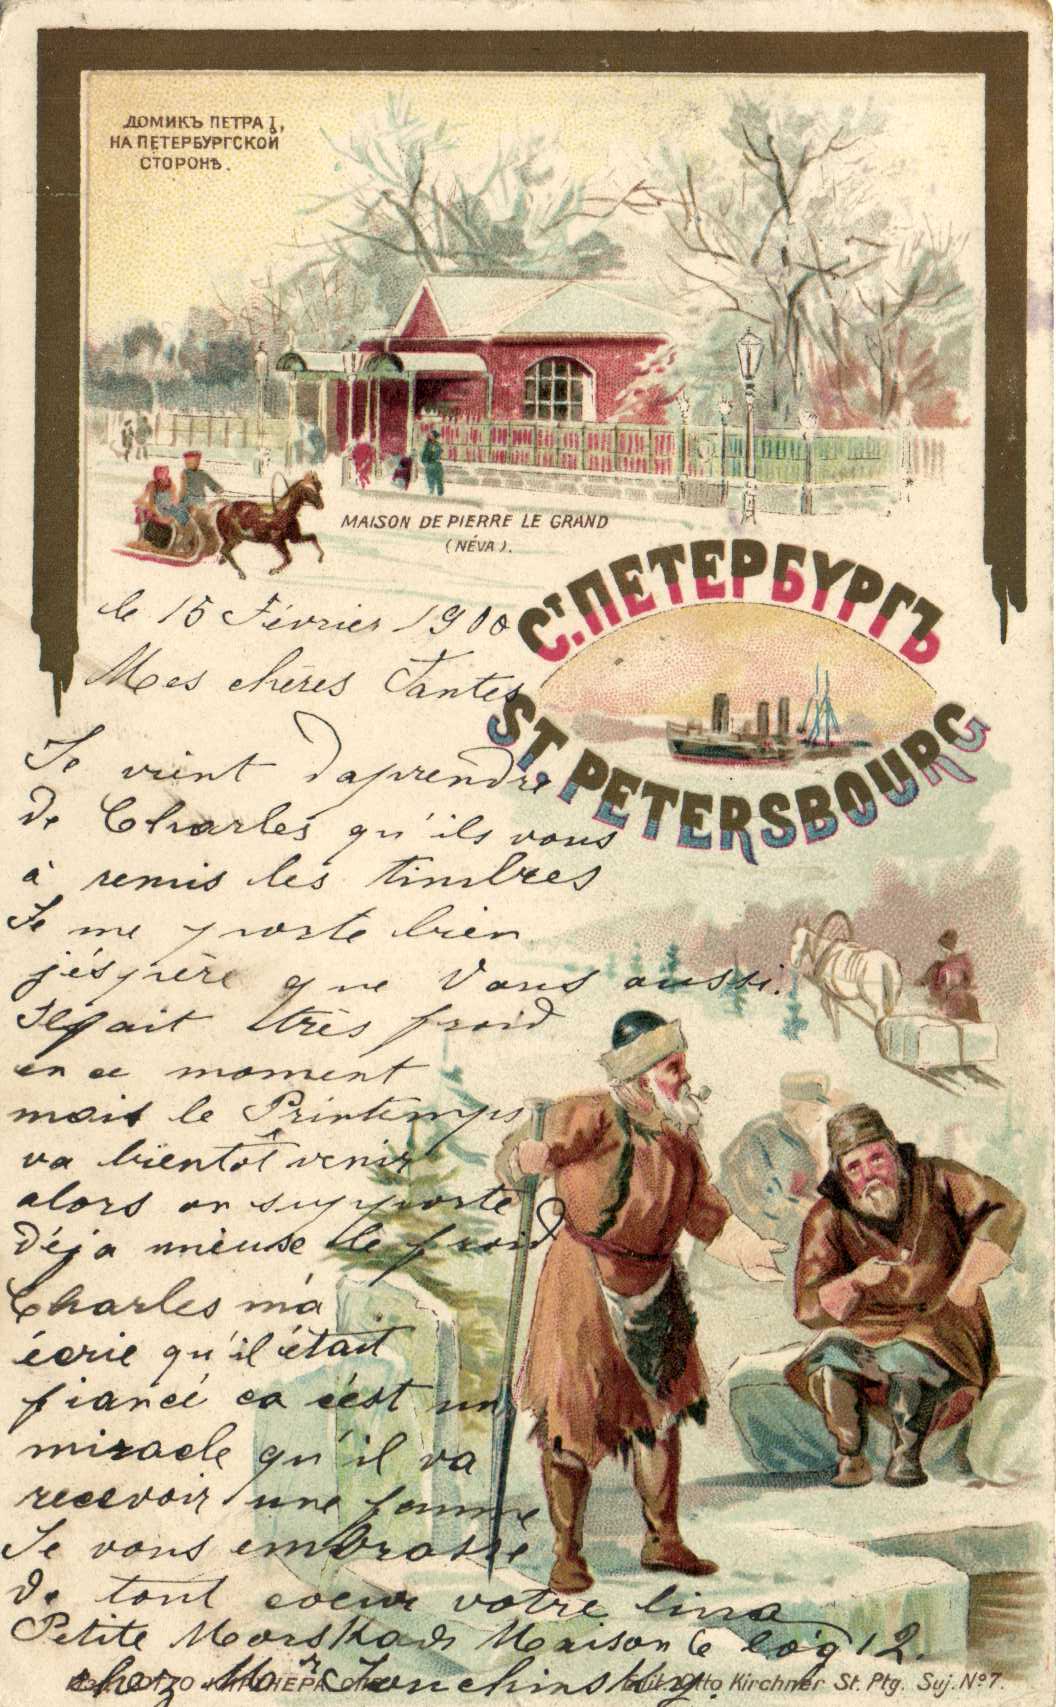 ДОМИКЪ ПЕТРА I,
НА ПЕТЕРБУРГСКОЙ
СТОРОНѢ.
MAISON DE PIERRE LE GRAND
(NÉVA).
Ст. ПЕТЕРБУРГЪ
ST. PETERSBOURG
le 15 Février 1900
Mes chères Tantes
Je vient d'aprendre
de Charles qu'ils vous
à remis les timbres
Je me porte bien
j'éspère que Vous aussi.
Il fait très froid
en ce moment
mais le Printemps
va bientôt venir
alors on supporte
déja mieuse le froid
Charles m'a
écrie qu'il était
fiancé ca c'ést un
miracle qu'il va
recevoir une famme
Je vous embrasse
de tout coeur votre Lina
Petite Morskada Maison 6 log 12.
chez Mr
Edit. Otto Kirchner St. Ptg. Suj. No 7.